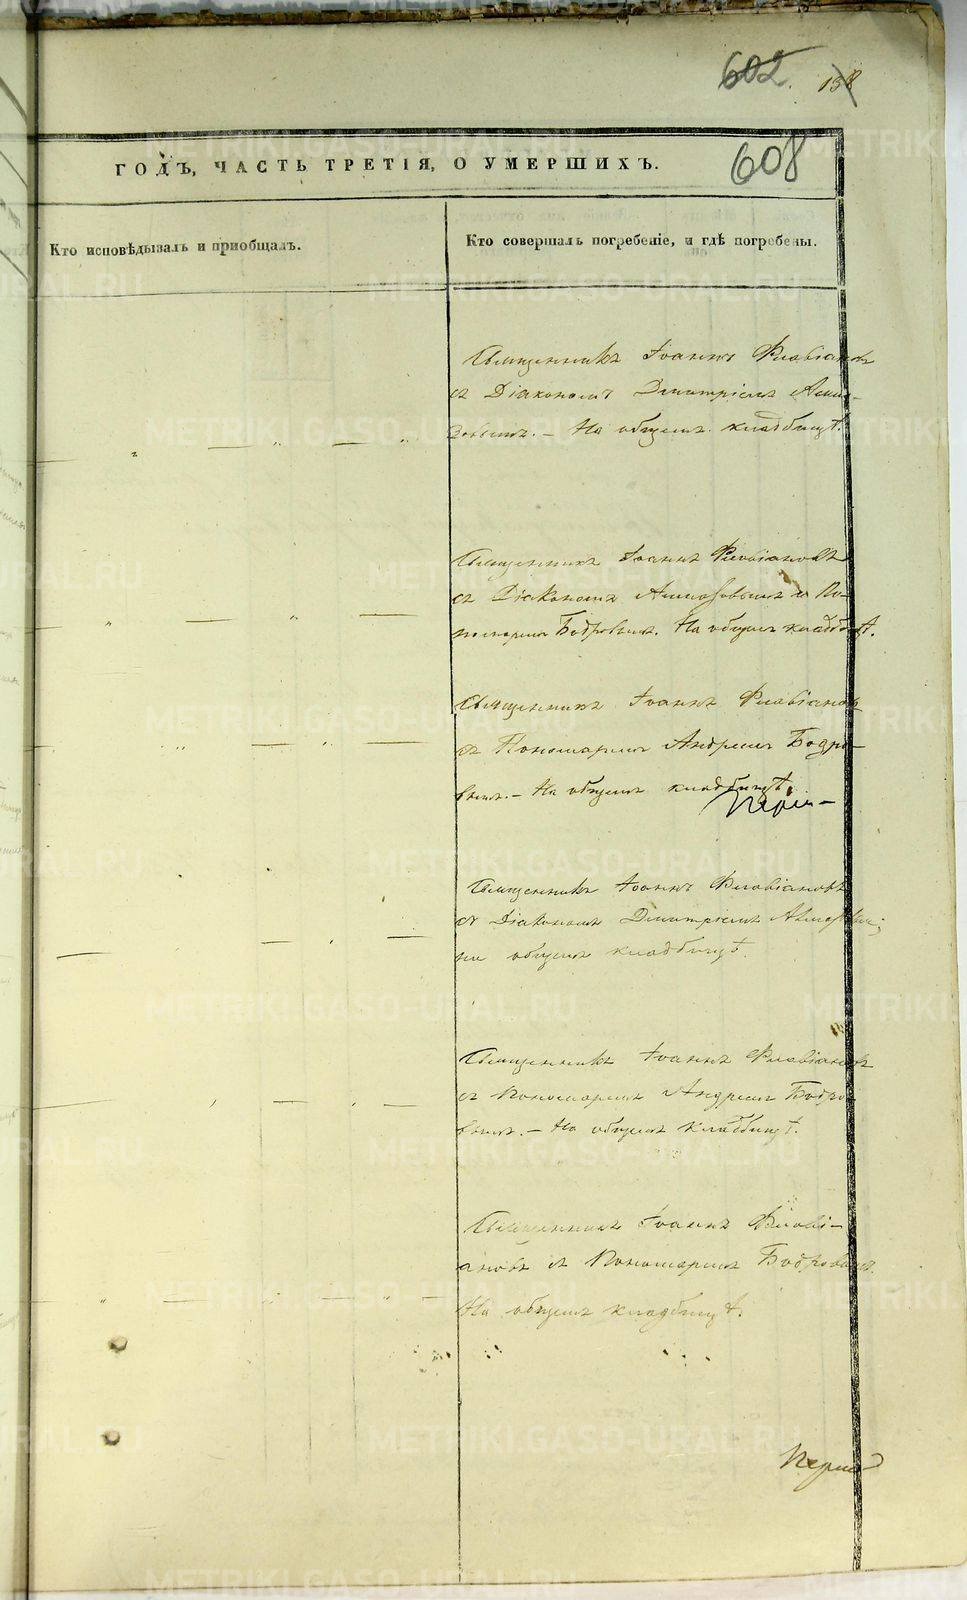 602. 158
608
ГОДЪ, ЧАСТЬ ТРЕТІЯ, О УМЕРШИХЪ.
Кто исповѣдывалъ и приобщалъ.
Кто совершалъ погребеніе, и гдѣ погребены.
Священникъ Іоаннъ Флавіановъ
съ Діакономъ Димитріемъ Алма-
зовымъ. – На общемъ кладбищѣ.
Священникъ Іоаннъ Флавіановъ
съ Діакономъ Алмазовымъ и По-
номаремъ Бодровымъ. На общемъ кладбищѣ.
Священникъ Іоаннъ Флавіановъ
съ Пономаремъ Андреемъ Бодро-
вымъ. – На общемъ кладбищѣ.
Священникъ Іоаннъ Флавіановъ
съ Діакономъ Димитріемъ Алмазовымъ;
на общемъ кладбищѣ.
Священникъ Іоаннъ Флавіановъ
съ Пономаремъ Андреемъ Бодро-
вымъ. – На общемъ кладбищѣ.
Священникъ Іоаннъ Флаві-
ановъ съ Пономаремъ Бодровымъ.
На общемъ кладбищѣ.
METRIKI.GASO-URAL.RU